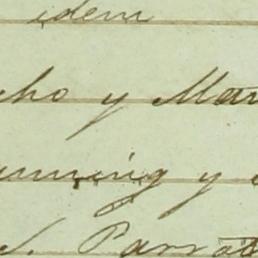 idem
cho y Mar
unning y
S. Parrot